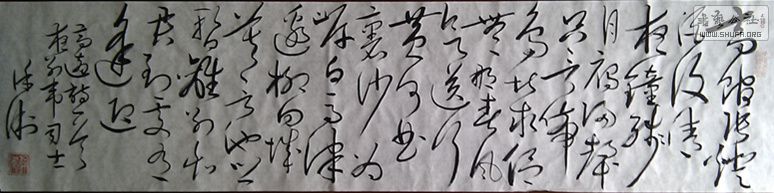 高館張燈
酒復清
夜鐘殘
月雁歸聲
只言啼
鳥堪求侶
無那春風
欲送行
黃河曲
裏沙為
岸白馬津
邊柳向城
莫怨他鄉
暫離別知
君到處有
逢迎
高適詩一首
夜別韋司士
WWW.SHUFA.ORG